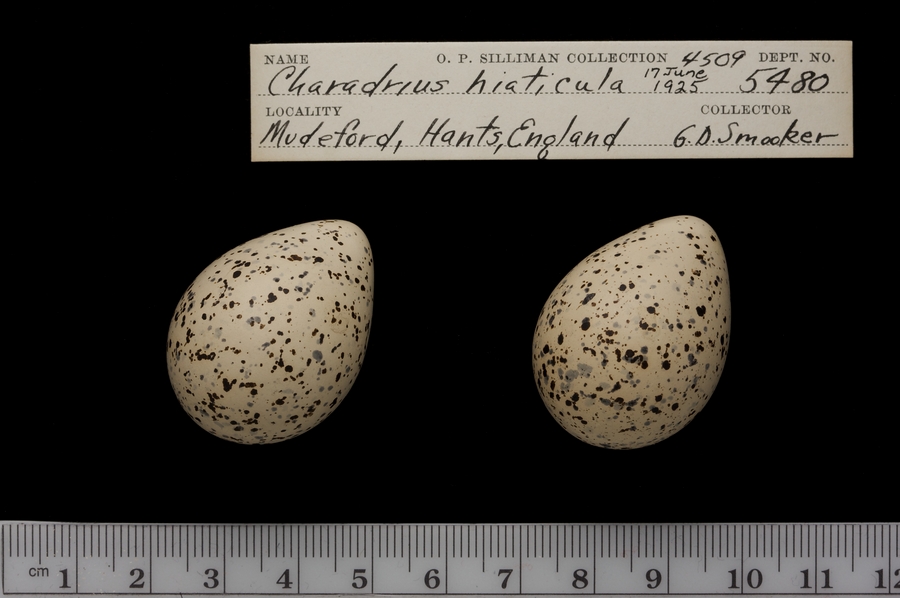 NAME O. P. SILLIMAN COLLECTION 4509 DEPT. NO.
Charadrius hiaticula 17 June 1925 5480
LOCALITY COLLECTOR
Mudeford, Hants, England G.D. Smooker
cm 1 2 3 4 5 6 7 8 9 10 11 12